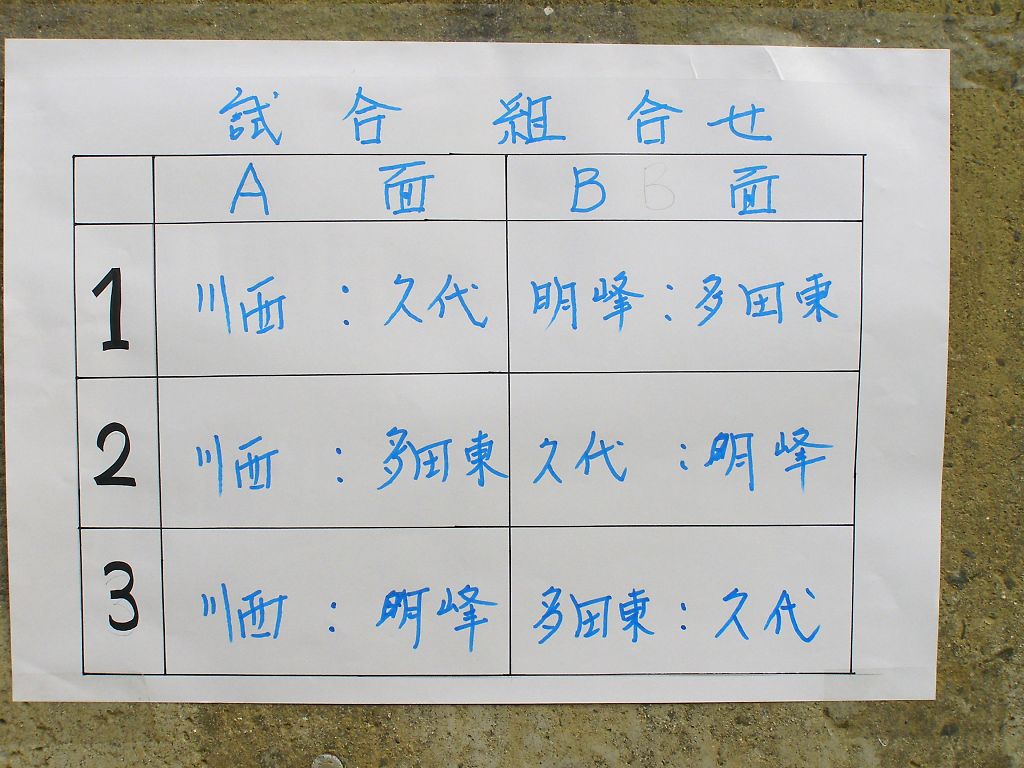 試合 組合せ
A 面 B B 面
1 川西 : 久代 明峰 : 多田東
2 川西 : 多田東 久代 : 明峰
3 川西 : 明峰 多田東 : 久代